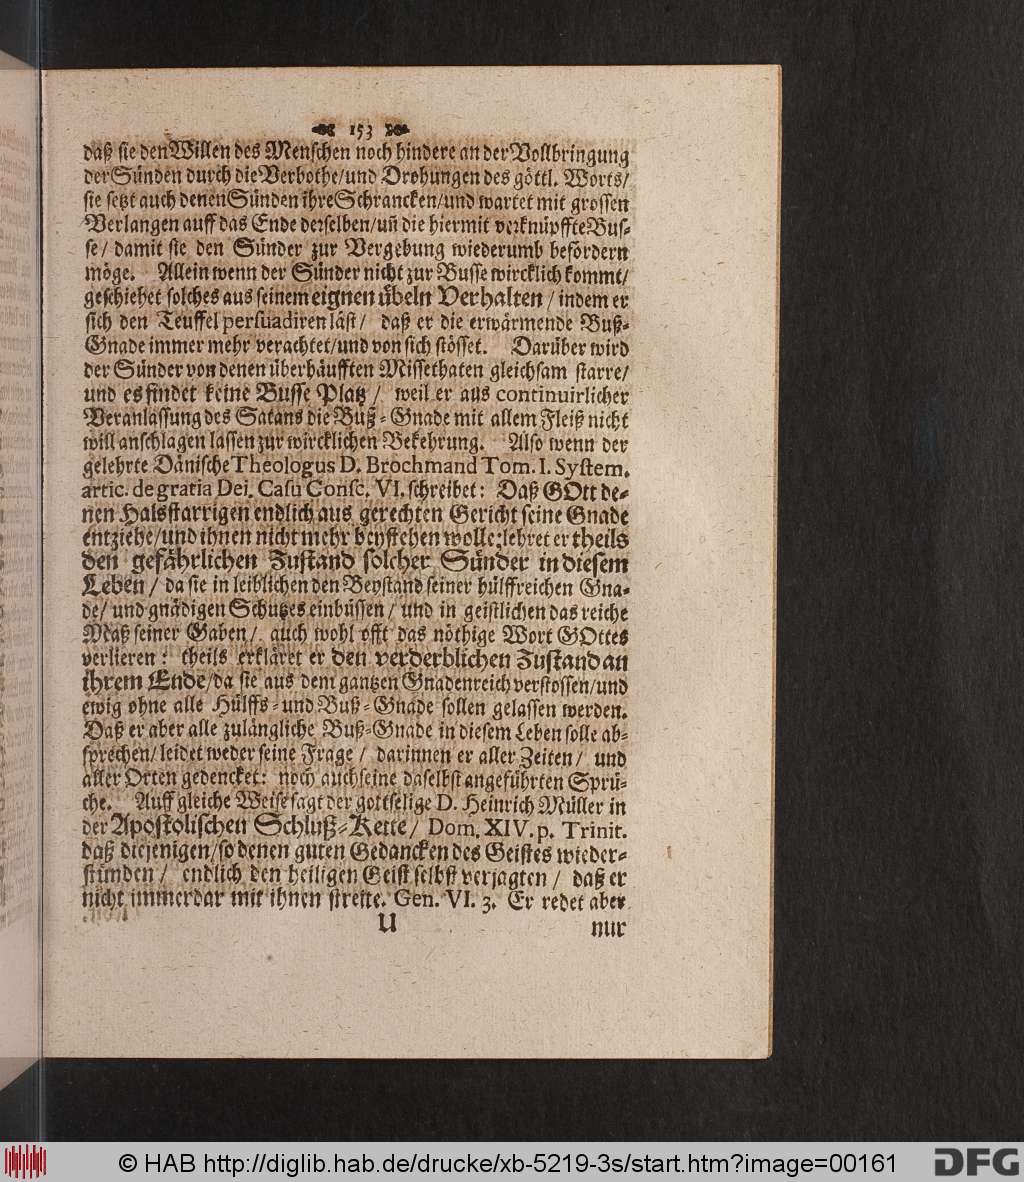 153
daß sie den Willen des Menschen noch hindere an der Vollbringung
der Sünden durch die Verbothe/und Drohungen des göttl. Worts/
sie setzt auch denen Sünden ihre Schrancken/und wartet mit grossen
Verlangen auff das Ende derselben/uñ die hiermit verknüpffte Bus-
se/ damit sie den Sünder zur Vergebung wiederumb befördern
möge. Allein wenn der Sünder nicht zur Busse wircklich kommt/
geschiehet solches aus seinem eignen übeln Verhalten / indem er
sich den Teuffel persuadiren läst/ daß er die erwärmende Buß-
Gnade immer mehr verachtet/und von sich stösset. Darüber wird
der Sünder von denen überhäufften Missethaten gleichsam starre/
und es findet keine Busse Platz / weil er aus continuirlicher
Veranlassung des Satans die Buß-Gnade mit allem Fleiß nicht
will anschlagen lassen zur wircklichen Bekehrung. Also wenn der
gelehrte Dänische Theologus D. Brochmand Tom. I. System.
artic. de gratia Dei. Casu Consc. VI. schreibet: Daß GOtt de-
nen Halsstarrigen endlich aus gerechten Gericht seine Gnade
entziehe/und ihnen nicht mehr beystehen wolle; lehret er theils
den gefährlichen Zustand solcher Sünder in diesem
Leben / da sie in leiblichen den Beystand seiner hülffreichen Gna-
de/ und gnädigen Schutzes einbüssen / und in geistlichen das reiche
Maß seiner Gaben/ auch wohl offt das nöthige Wort GOttes
verlieren: theils erkläret er den verderblichen Zustand an
ihrem Ende/da sie aus dem gantzen Gnadenreich verstossen/und
ewig ohne alle Hülffs- und Buß-Gnade sollen gelassen werden.
Daß er aber alle zulängliche Buß-Gnade in diesem Leben solle ab-
sprechen/ leidet weder seine Frage / darinnen er aller Zeiten / und
aller Orten gedencket: noch auch seine daselbst angeführten Sprü-
che. Auff gleiche Weise sagt der gottselige D. Heinrich Müller in
der Apostolischen Schluß-Kette/ Dom. XIV. p. Trinit.
daß diejenigen/so denen guten Gedancken des Geistes wieder-
stünden / endlich den heiligen Geist selbst verjagten / daß er
nicht immerdar mit ihnen streite. Gen. VI. 3. Er redet aber
U
nur
© HAB http://diglib.hab.de/drucke/xb-5219-3s/start.htm?image=00161
DFG